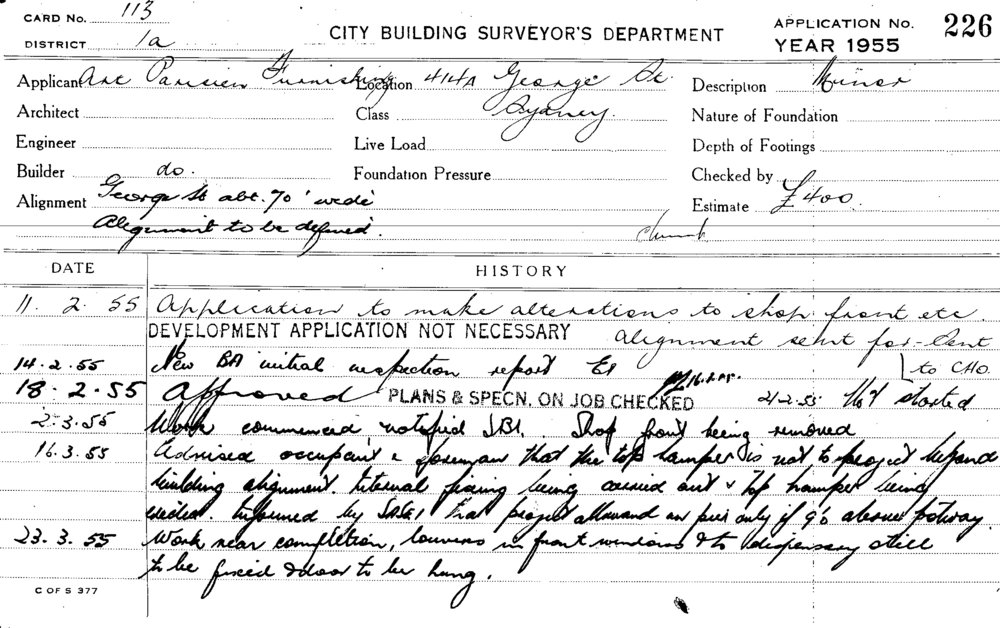 CARD No. 113
DISTRICT 1a
CITY BUILDING SURVEYOR'S DEPARTMENT
APPLICATION No. 226
YEAR 1955
Applicant Art Parisien Furnishing Location 414A George St. Description Minor
Architect Class Sydney. Nature of Foundation
Engineer Live Load Depth of Footings
Builder do. Foundation Pressure Checked by
Alignment George St abt. 70' wide Estimate £400.
Alignment to be defined.
DATE HISTORY
11. 2. 55 Application to make alterations to shop front etc.
DEVELOPMENT APPLICATION NOT NECESSARY Alignment sent for
14.2.55 New BA initial inspection report to CHO.
18.2.55 Approved PLANS & SPECN. ON JOB CHECKED 21.2.55 Not started
2.3.55 Work commenced notified Shop front being removed
16.3.55 Advised occupant & foreman that the top hamper is not to project beyond
building alignment. Internal fixing being carried out & top hamper being
Informed by that only if 9'0 above footway.
23.3.55 Work near completion, louvres in front windows & to dispensary still
to be fixed & door to be hung.
C OF S 377